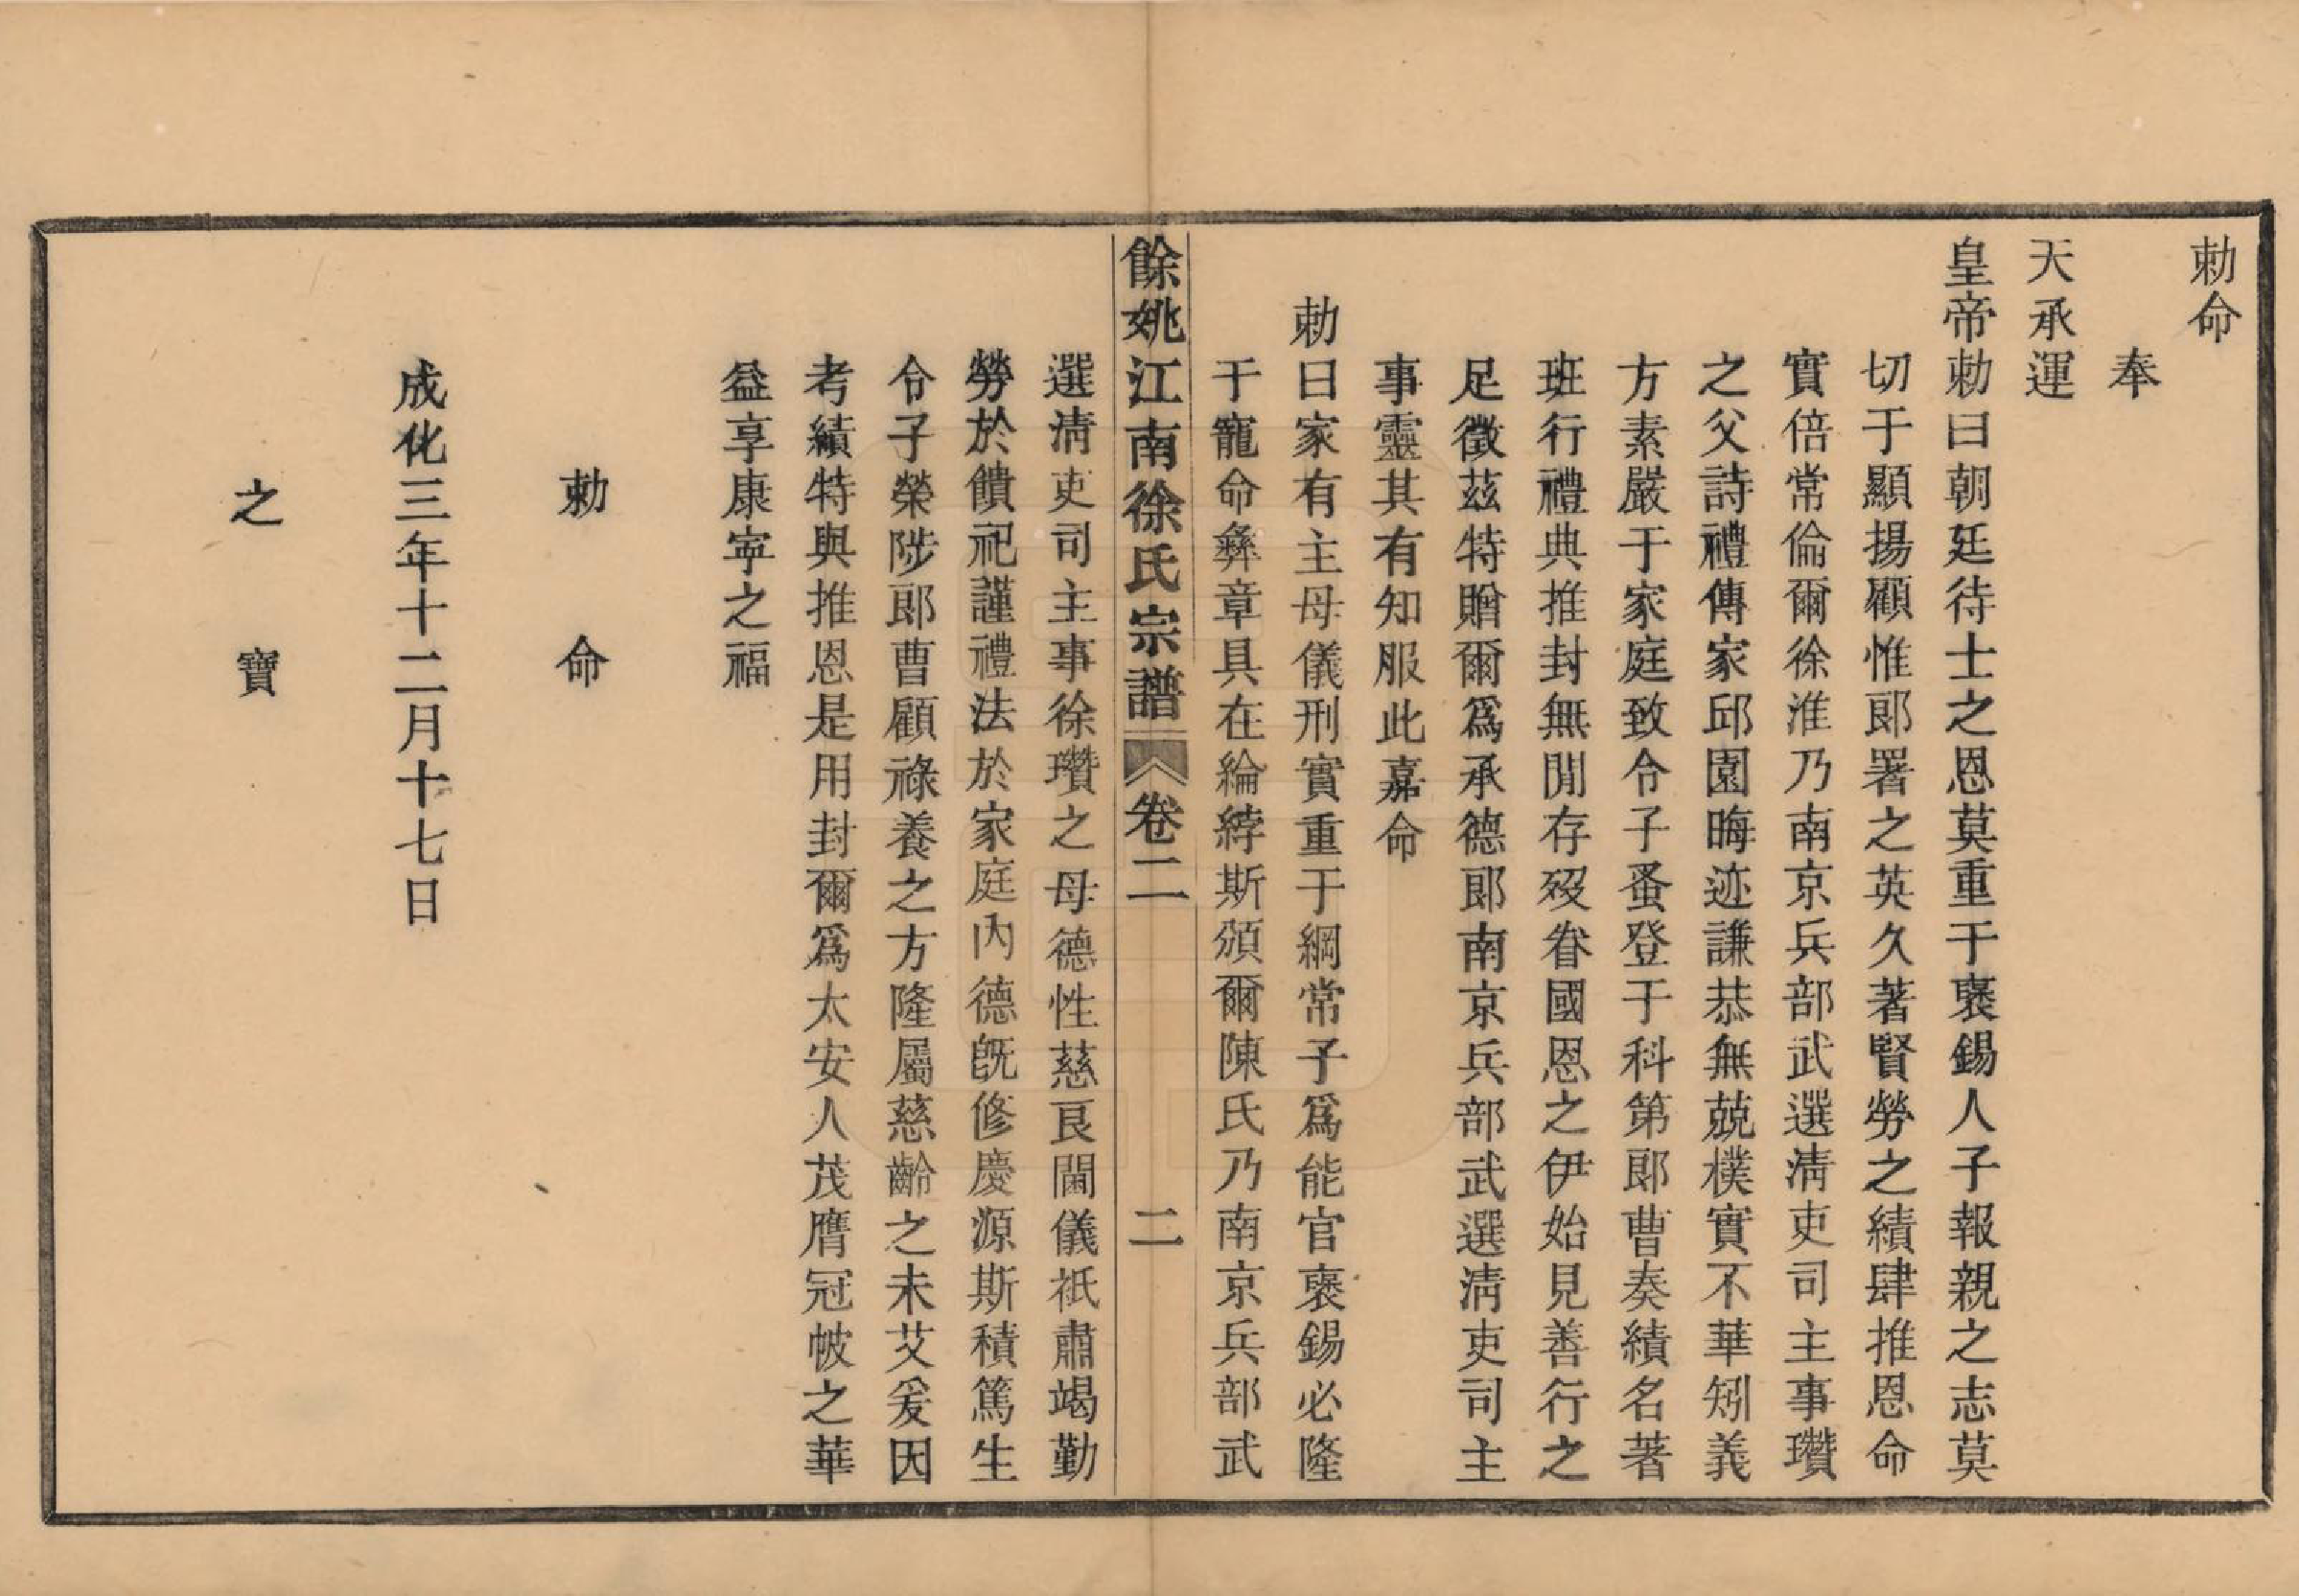 勅命
奉
天承運
皇帝勅曰朝廷待士之恩莫重于褒錫人子報親之志莫
切于顯揚顧惟郎署之英久著賢勞之績肆推恩命
實倍常倫爾徐淮乃南京兵部武選清吏司主事瓚
之父詩禮傳家邱園晦迹謙恭無兢樸實不華矧義
方素嚴于家庭致令子蚤登于科第郎曹奏績名著
班行禮典推封無閒存歿眷國恩之伊始見善行之
足徵茲特贈爾爲承德郎南京兵部武選清吏司主
事靈其有知服此嘉命
勅曰家有主母儀刑實重于綱常子爲能官褒錫必隆
于寵命彝章具在綸綍斯頒爾陳氏乃南京兵部武
餘姚江南徐氏宗譜 卷二 二
選清吏司主事徐瓚之母德性慈良閫儀祇肅竭勤
勞於饋祀謹禮法於家庭內德旣修慶源斯積篤生
令子榮陟郎曹顧祿養之方隆屬慈齡之未艾爰因
考績特與推恩是用封爾爲太安人茂膺冠帔之華
益享康寧之福
勅命
成化三年十二月十七日
之寶